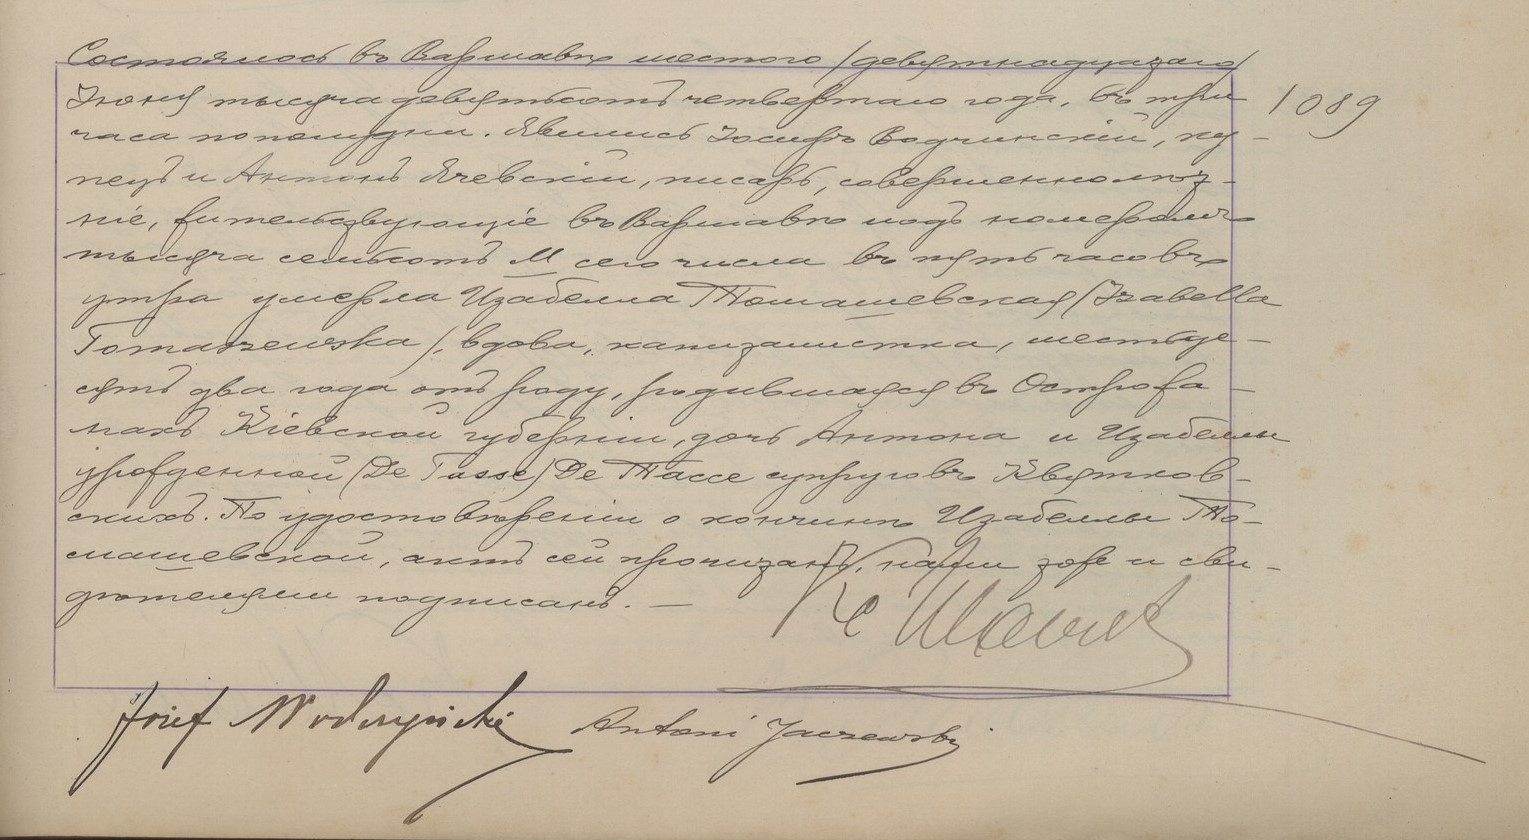 Состоялось въ Варшавѣ шестого /девятнадцатаго/
Іюня тысяча девятьсотъ четвертаго года, въ три
1089
часа пополудни. Явились Іосифъ Водчинскій, ку-
пецъ и Антонъ Ячевскій, писарь, совершеннолѣт-
ніе, жительствующіе въ Варшавѣ подъ номеромъ
тысяча семьсотъ М сего числа въ пять часовъ
утра умерла Изабелла Томашевская (Izabella
Tomaszewska), вдова, капиталистка, шестьде-
сятъ два года отъ роду, родившаяся въ Острожа-
нахъ Кіевской губерніи, дочь Антона и Изабеллы
урожденной (De Tasse) Де Тассе супруговъ Квятков-
скихъ. По удостовѣреніи о кончинѣ Изабеллы То-
машевской, актъ сей прочитанъ, нами и сви-
дѣтелями подписанъ. —
Józef Antoni Jaczewski